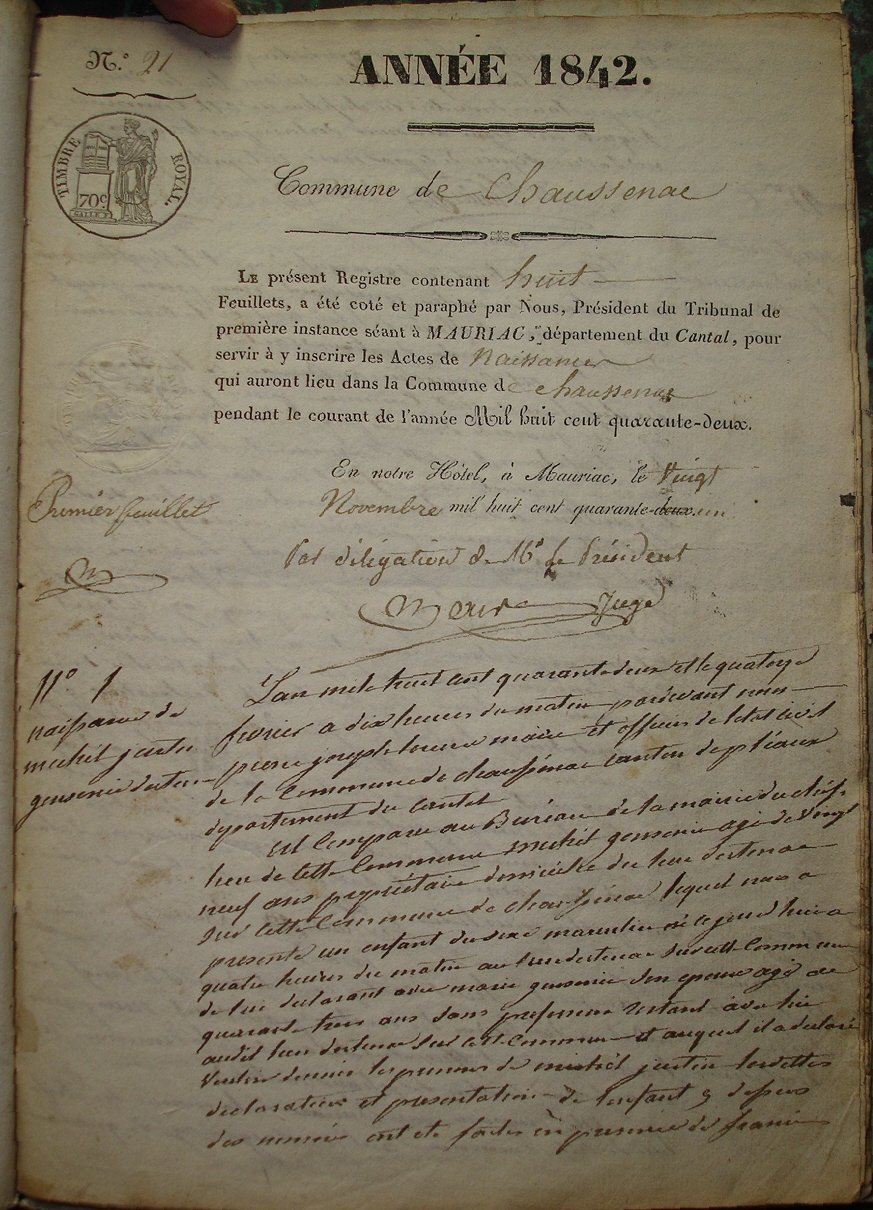 N.° 21
ANNÉE 1842.
TIMBRE ROYAL.
70c
Commune de Chaussenac
LE présent Registre contenant huit
Feuillets, a été coté et paraphé par Nous, Président du Tribunal de
première instance séant à MAURIAC, département du Cantal, pour
servir à y inscrire les Actes de Naissances
qui auront lieu dans la Commune de chaussenac
pendant le courant de l'année Mil huit cent quarante-deux.
En notre Hôtel, à Mauriac, le Vingt
Premier feuillet
Novembre mil huit cent quarante-deux un
Par délégation de Mr le Président
Juge
N° 1
naissance de
michel justin
L'an mil huit cent quarante deux et le quatorze
fevrier a dix heures du matin pardevant nous
pierre joseph maire et officier de letat civil
de la Commune de chaussenac canton de pléaux
departement du cantal
est Comparu au Bureau de la mairie du chef
lieu de cette Commune michel agé de vingt
neuf ans propriétaire domicilié du lieu
sur cette Commune de chaussenac lequel nous a
presenté un enfant du sexe masculin né ce jourd'hui a
quatre heures du matin au lieu sur cette Commune
de lui declarant avec marie son epouse agé de
quarante trois ans sans profession restant avec lui
audit lieu sur cette Commune et auquel il a declaré
Vouloir donner les prenoms de michel justin
declaration et presentation de l'enfant dessus
ont eté faites en presence de